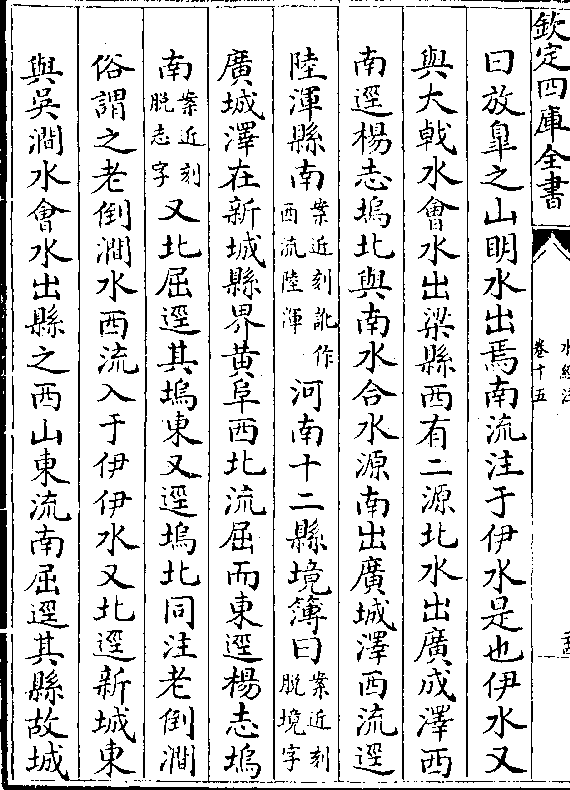 欽定四庫全書
水經注
卷十五
曰放臯之山明水出焉南流注于伊水是也伊水又
與大戟水會水出梁縣西有二源北水出廣成澤西
南逕楊志塢北與南水合水源南出廣城澤西流逕
陸渾縣南案近刻訛作西流陸渾河南十二縣境簿曰案近刻脱境字
廣城澤在新城縣界黄阜西北流屈而東逕楊志塢
南案近刻脱志字又北屈逕其塢東又逕塢北同注老倒澗
俗謂之老倒澗水西流入于伊伊水又北逕新城東
與吳澗水會水出縣之西山東流南屈逕其縣故城